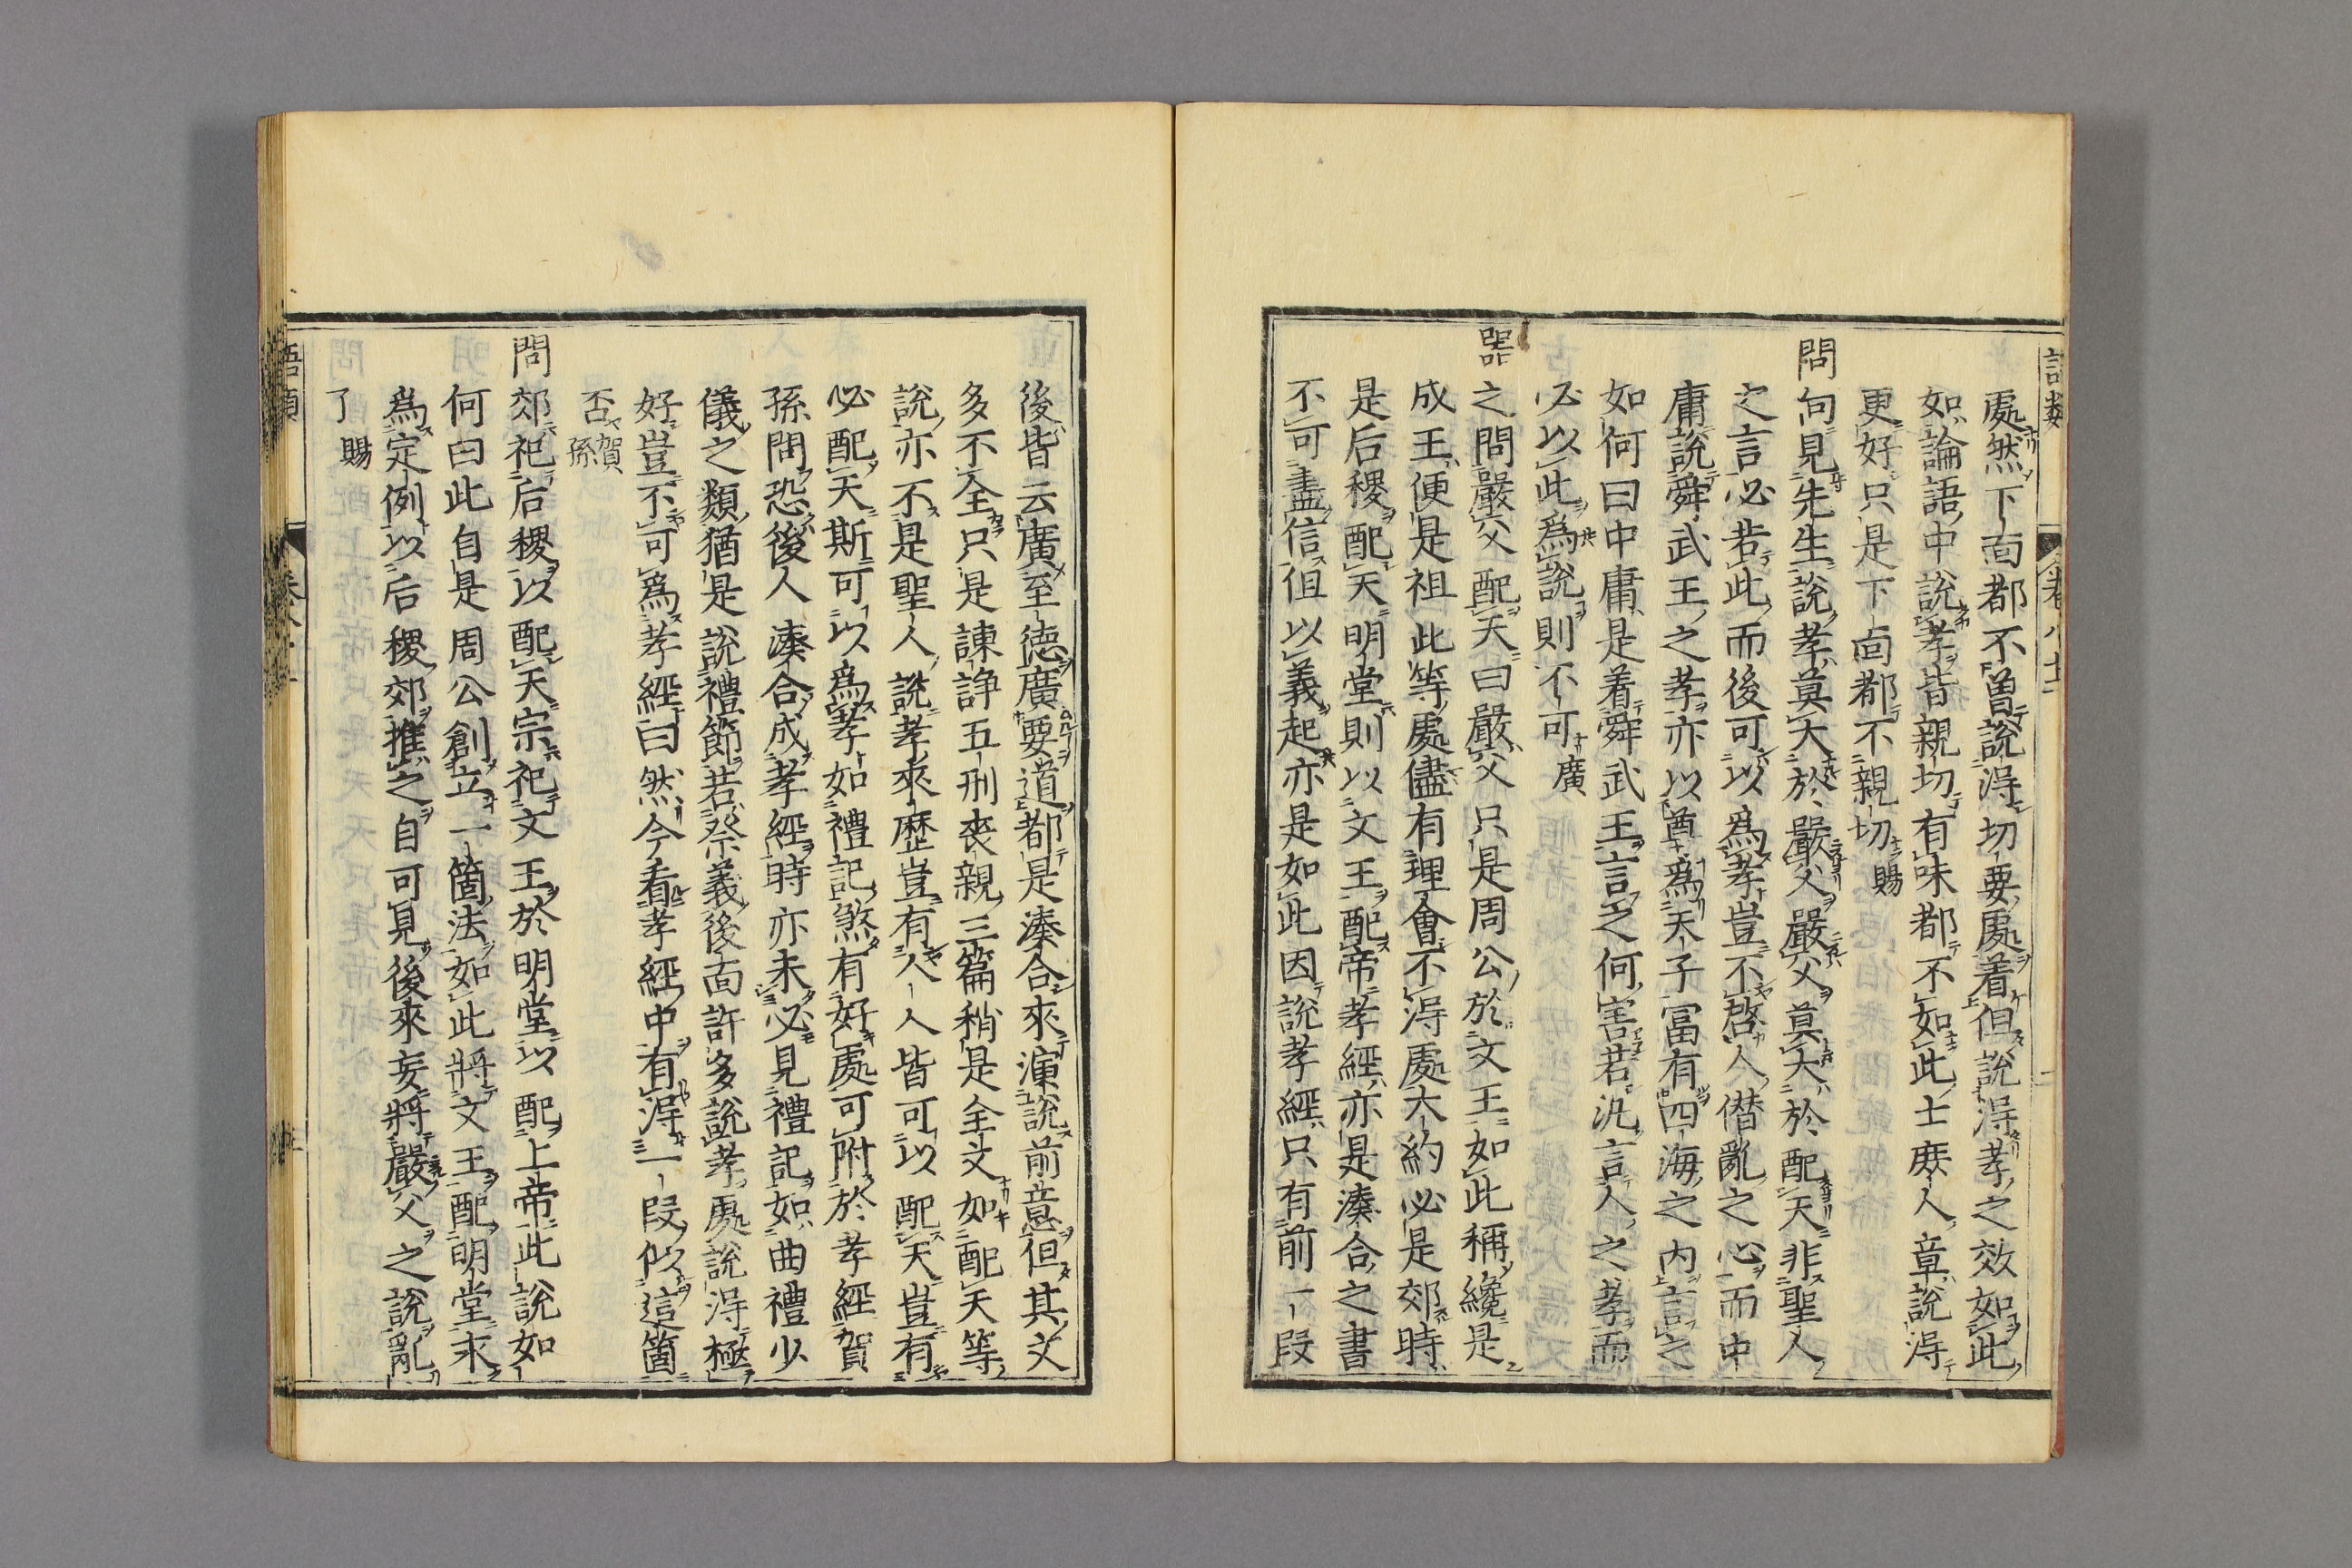 處然下面都不曾說得切要處着但說得孝之效如此
如論語中說孝皆親切有味都不如此士庶人章說得
更好只是下面都不親切 賜
問向見先生說孝莫大於嚴父嚴父莫大於配天非聖人
之言必若此而後可以爲孝豈不啓人僭亂之心而中
庸說舜武王之孝亦以尊爲天子富有四海之內言之
如何曰中庸是着舜武王言之何害若汎言人之孝而
必以此爲說則不可 廣
器之問嚴父配天曰嚴父只是周公於文王如此稱纔是
成王便是祖此等處儘有理會不得處大約必是郊時
是后稷配天明堂則以文王配帝孝經亦是湊合之書
不可盡信但以義起亦是如此因說孝經只有前一段
後皆云廣至德廣要道都是湊合來演說前意但其文
多不全只是諫諍五刑喪親三篇稍是全文如配天等
說亦不是聖人說孝來歷豈有人人皆可以配天豈有
必配天斯可以爲孝如禮記煞有好處可附於孝經賀
孫問恐後人湊合成孝經時亦未必見禮記如曲禮少
儀之類猶是說禮節若祭義後面許多說孝處說得極
好豈不可爲孝經曰然今看孝經中有得一段似這箇
否 賀孫
問郊祀后稷以配天宗祀文王於明堂以配上帝此說如
何曰此自是周公創立一箇法如此將文王配明堂永
爲定例以后稷郊推之自可見後來妄將嚴父之說亂
了 賜